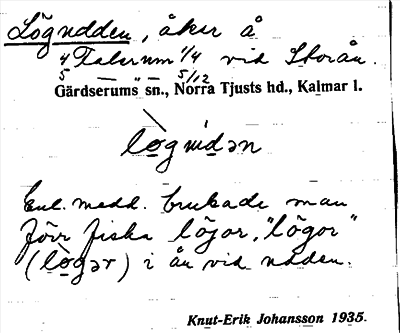 Lögudden, åker å
4/5 Falerum 1/4 vid Storån.
5/12
Gärdserums sn., Norra Tjusts hd., Kalmar l.
Enl. medd. brukade man
förr fiska löjor, "lögor"
(lògər) i ån vid udden.
Knut-Erik Johansson 1935.